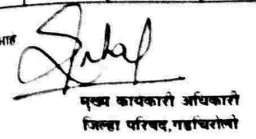 माह
मुख्य कार्यकारी अधिकारी
जिल्हा परिषद, गडचिरोली